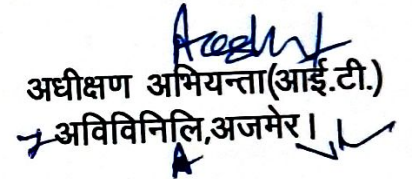 अधीक्षण अभियन्ता(आई.टी.)
अविविनिलि,अजमेर।